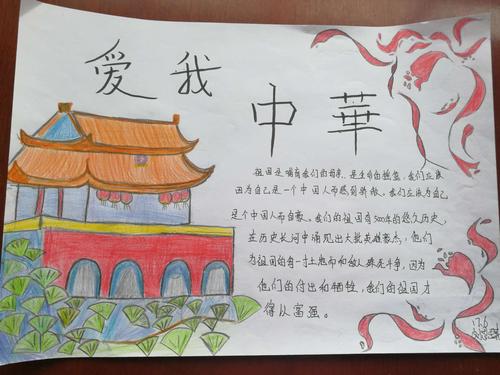 爱我
中華
祖国是哺育我们的母亲，是生命的摇篮，我们应该
因为自己是一个中国人而感到骄傲。我们应该为自己
是个中国人而自豪。我们的祖国有5000年的悠久历史，
在历史长河中涌现出大批英雄豪杰，他们
为祖国的每一寸土地而和敌人殊死斗争，因为
他们的付出和牺牲，我们的祖国才
得以富强。